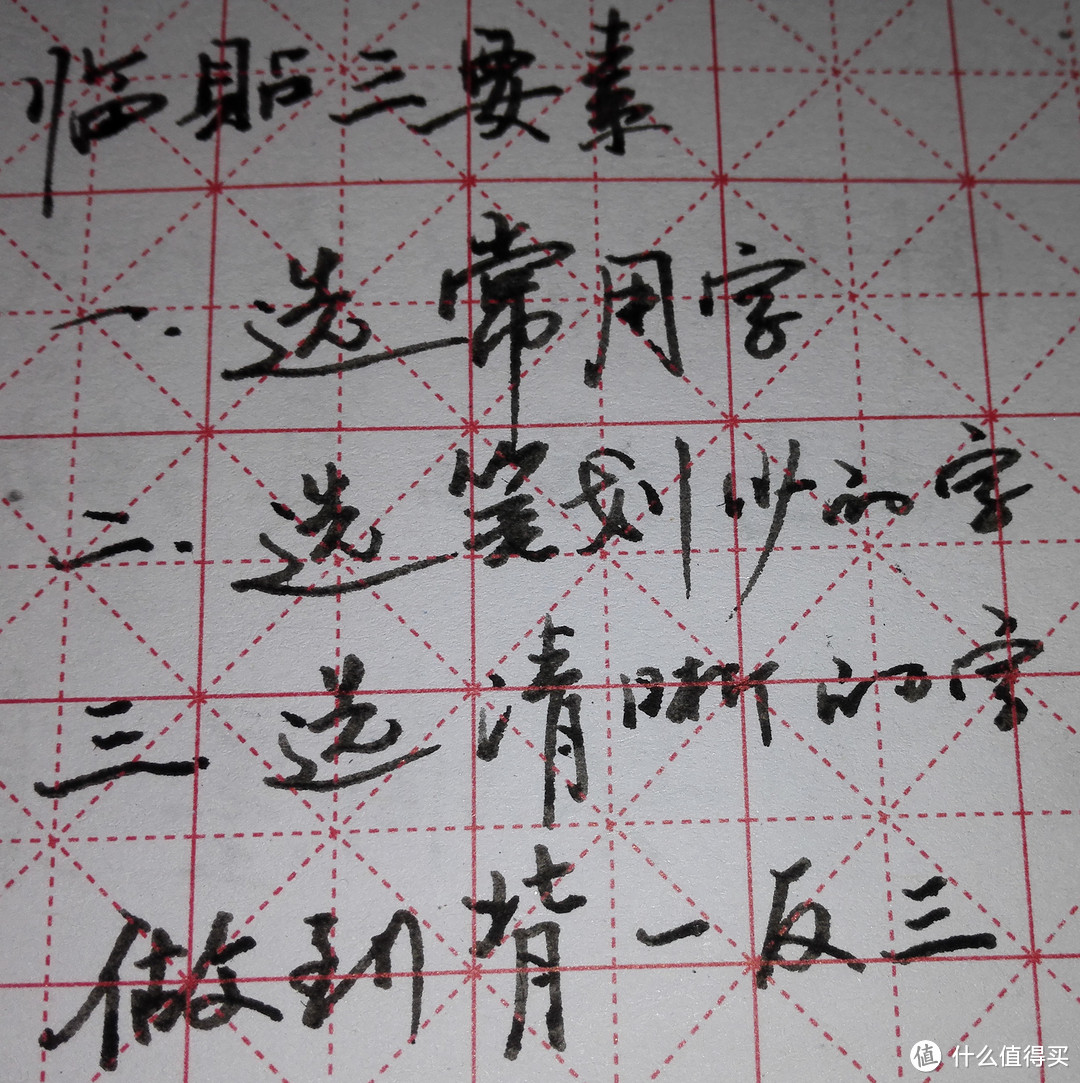 临貼三要素
一.选常用字
二.选笔划少的字
三选清晰的字
做到背一反三
值 什么值得买